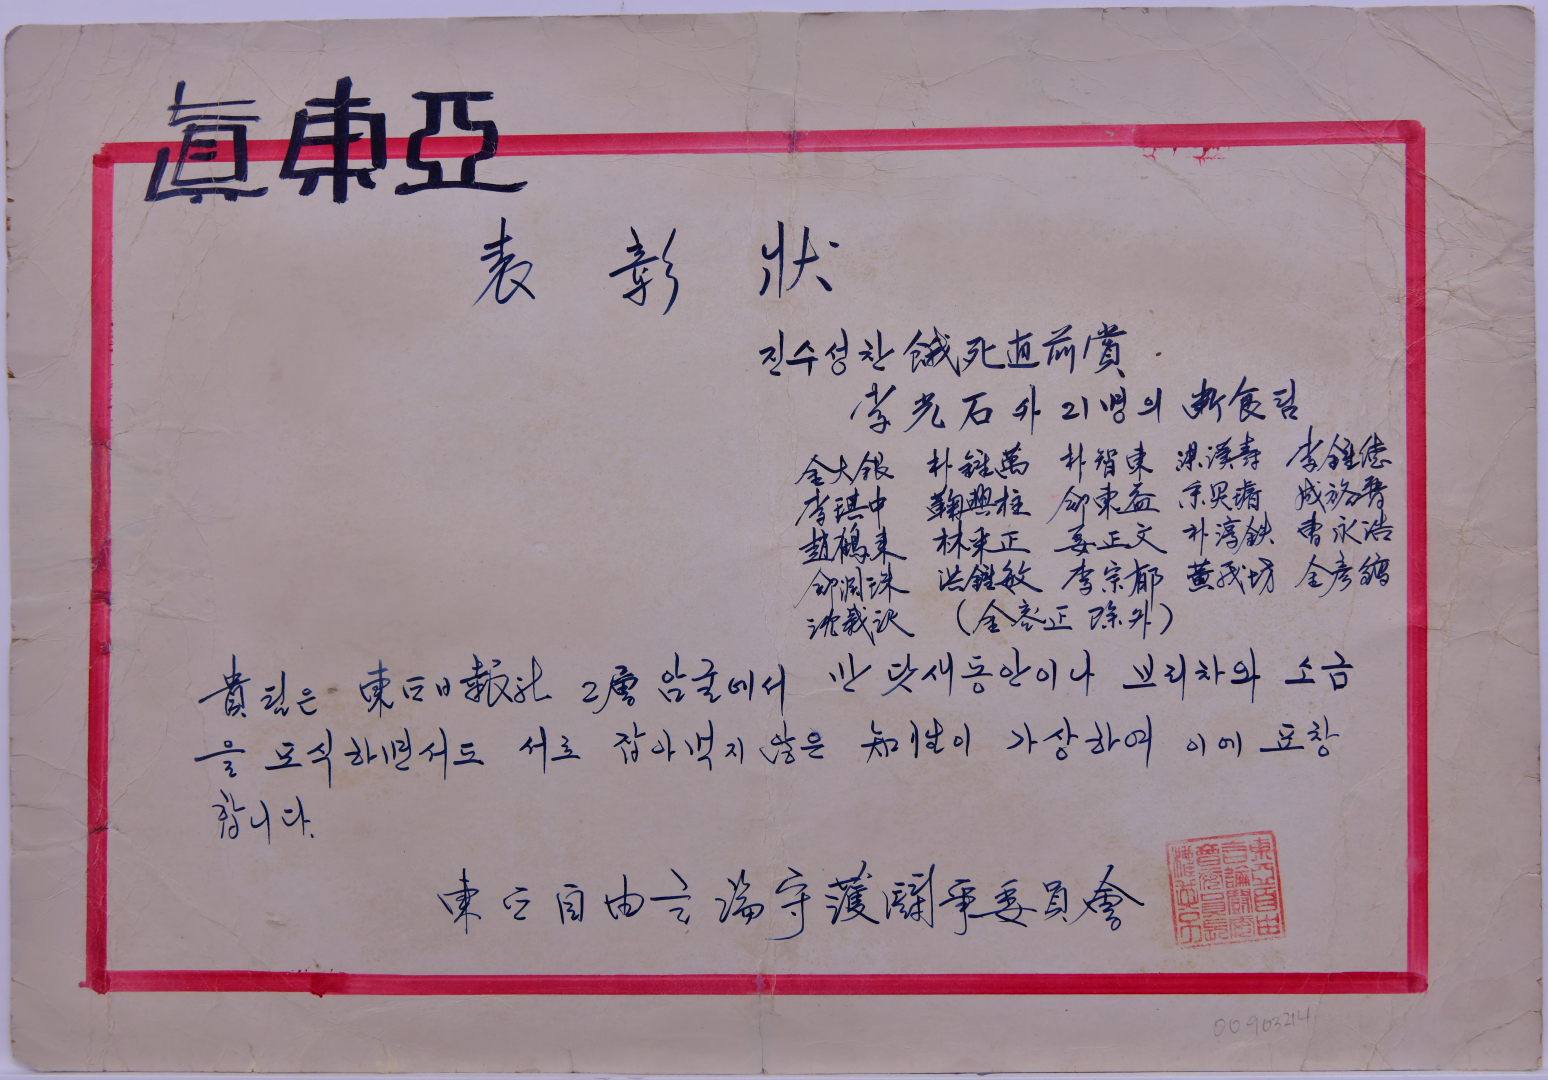 眞東亞
表彰狀
진수성찬 餓死直前賞
李光石 外 21명의 斷食팀
金大銀 朴鍾萬 朴智東 梁漢壽 李鍾德
李琪中 鞠興柱 鄭東益 宋 成裕普
趙鶴來 林釆正 姜正文 朴淳鉄 曺永浩
鄭潤珠 洪鍾敏 李宗郁 黃 金彦鎬
沈載沢 (金 正 除外)
貴팀은 東亞日報社 2層 암굴에서 만 닷새동안이나 보리차와 소금
을 포식하면서도 서로 잡아먹지 않은 知性이 가상하여 이에 표창
합니다.
東亞自由言論守護鬪爭委員會
00903214